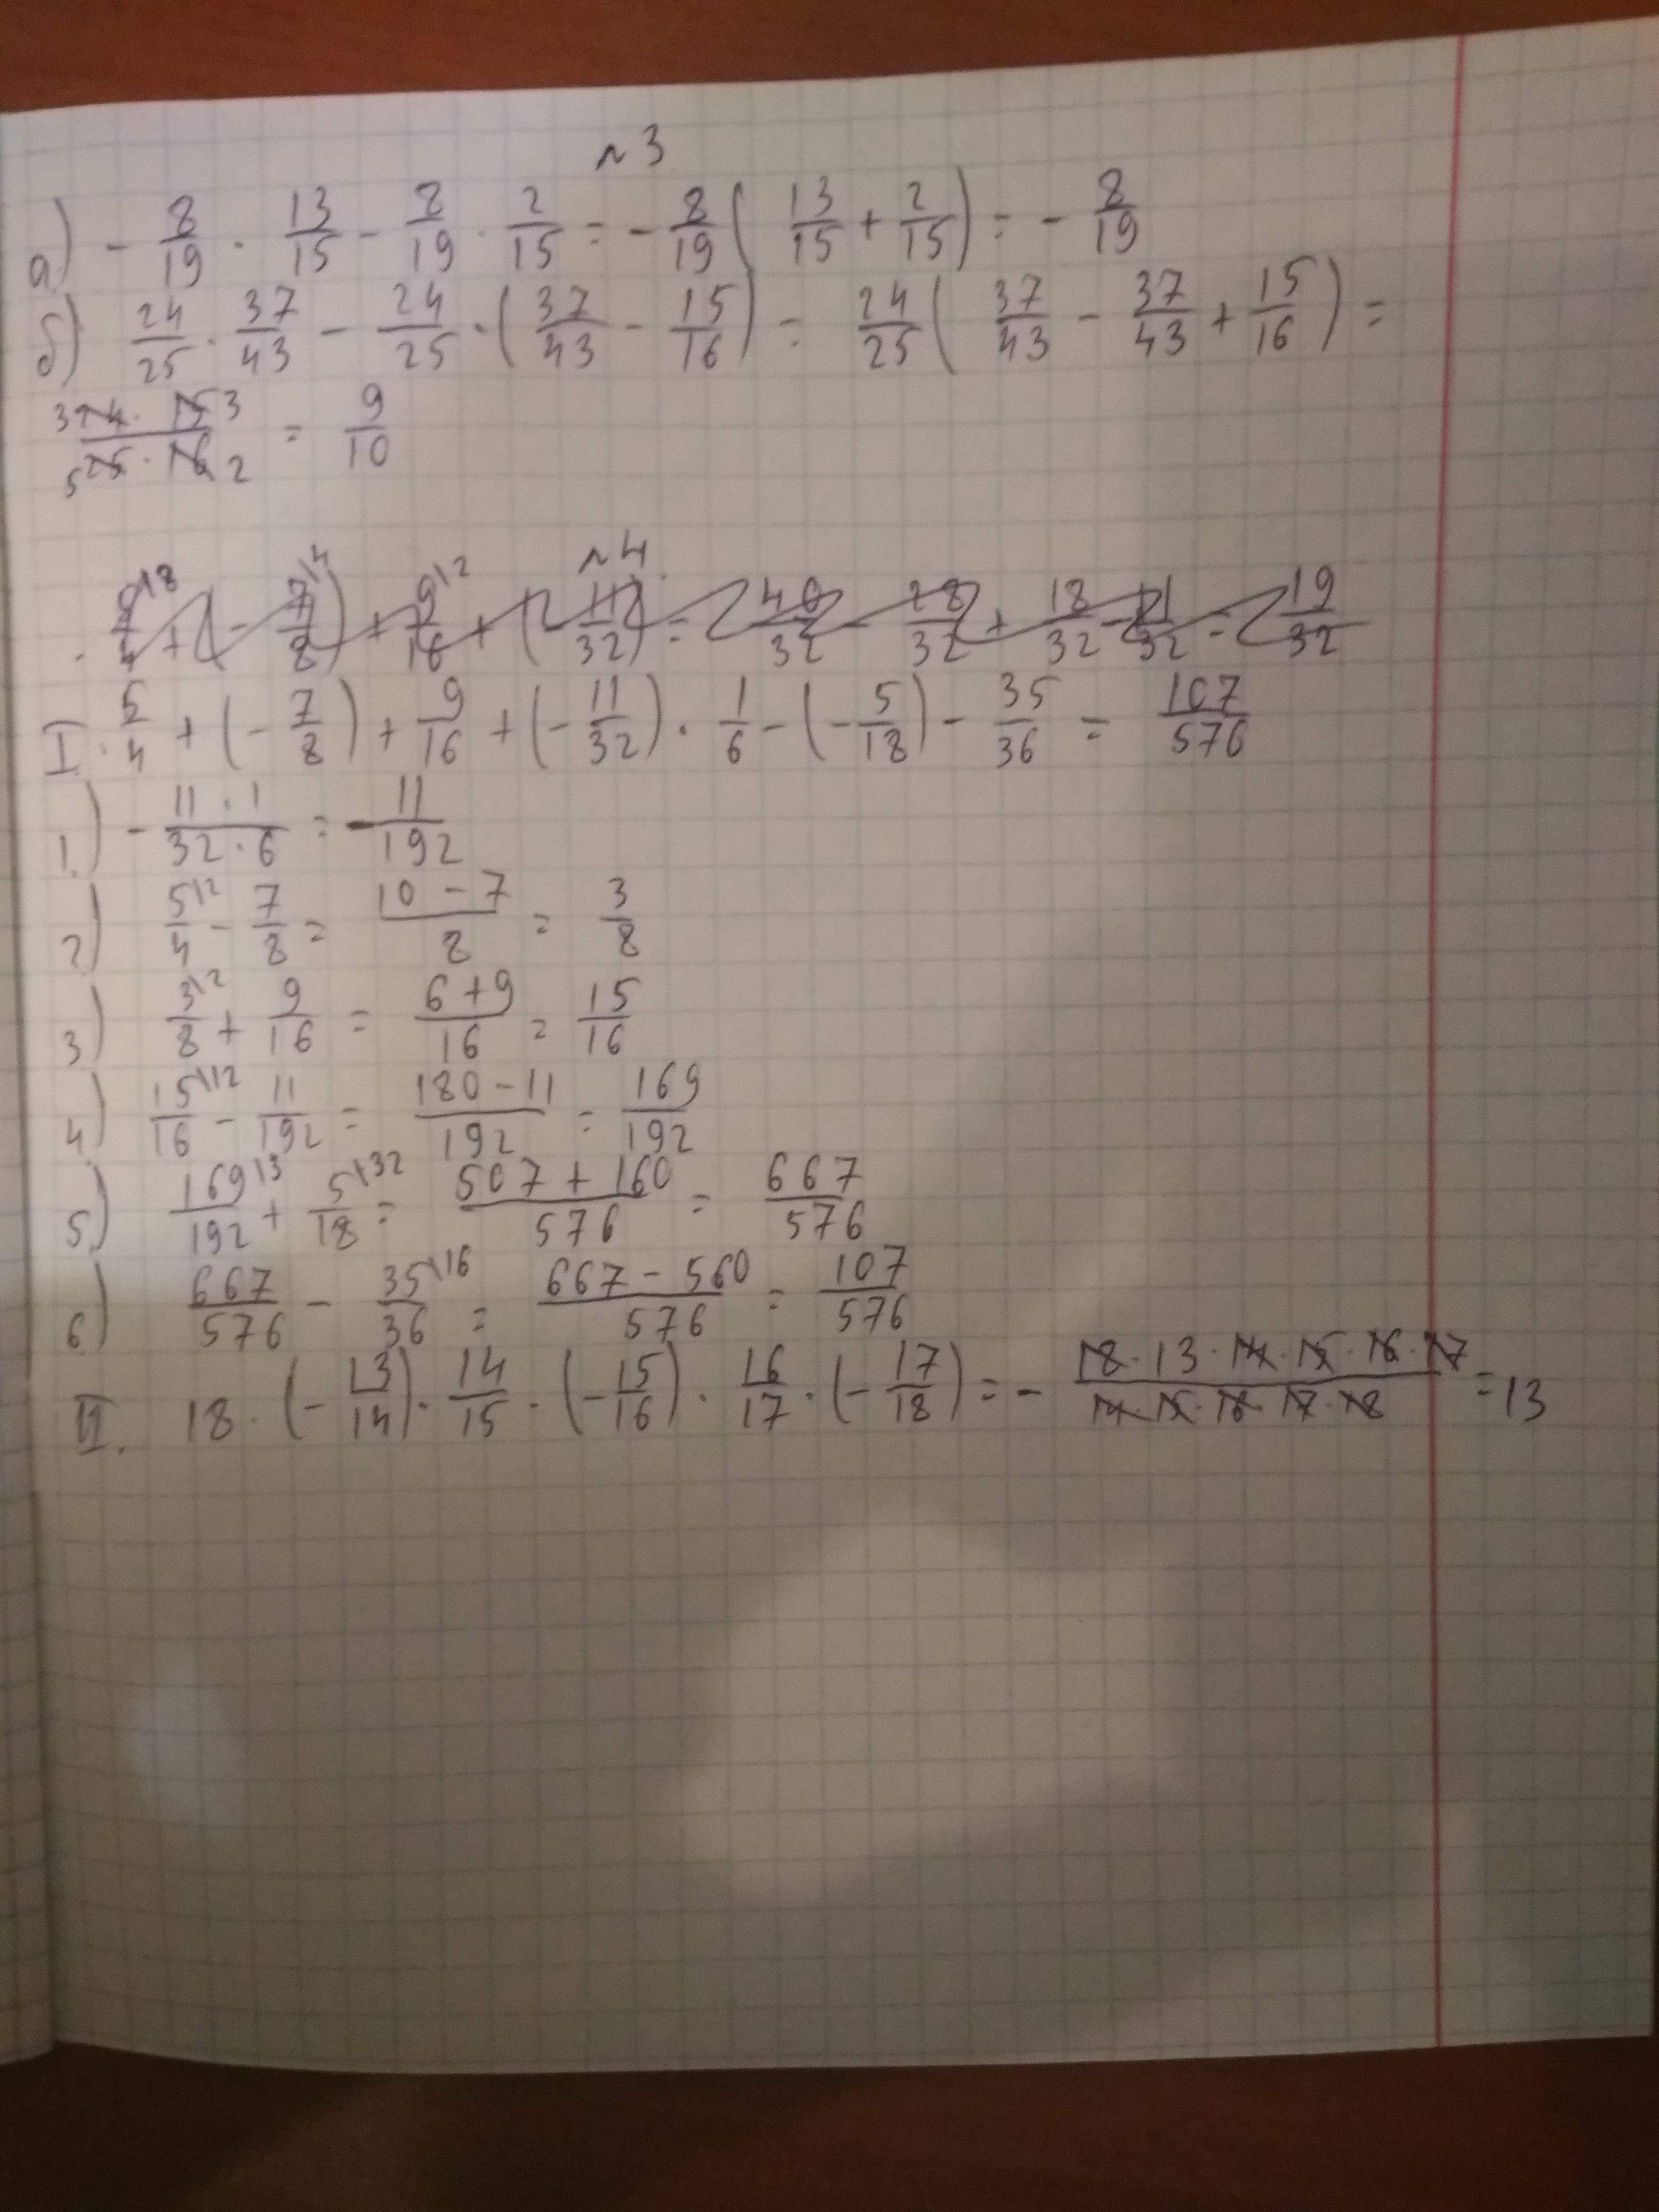 №3
а) - 8/19 · 13/15 - 8/19 · 2/15 = - 8/19 ( 13/15 + 2/15 ) = - 8/19
б) 24/25 · 37/43 - 24/25 · ( 37/43 - 15/16 ) = 24/25 ( 37/43 - 37/43 + 15/16 ) =
3 24 · 15 3 / 5 25 · 16 2 = 9/10
№4
5\8/4 + ( - 7\4/8 ) + 9\2/16 + ( - 11/32 ) = 40/32 - 28/32 + 18/32 - 11/32 = 19/32
I. 5/4 + ( - 7/8 ) + 9/16 + ( - 11/32 ) · 1/6 - ( - 5/18 ) - 35/36 = 107/576
1.) - 11 · 1 / 32 · 6 = - 11/192
2) 5\2/4 - 7/8 = 10 - 7 / 8 = 3/8
3) 3\2/8 + 9/16 = 6 + 9 / 16 = 15/16
4) 15\12/16 - 11/192 = 180 - 11 / 192 = 169/192
5) 169\3/192 + 5\32/18 = 507 + 160 / 576 = 667/576
6) 667/576 - 35\16/36 = 667 - 560 / 576 = 107/576
II. 18 · ( - 13/14 ) · 14/15 · ( - 15/16 ) · 16/17 · ( - 17/18 ) = - 18 · 13 · 14 · 15 · 16 · 17 / 14 · 15 · 16 · 17 · 18 = 13